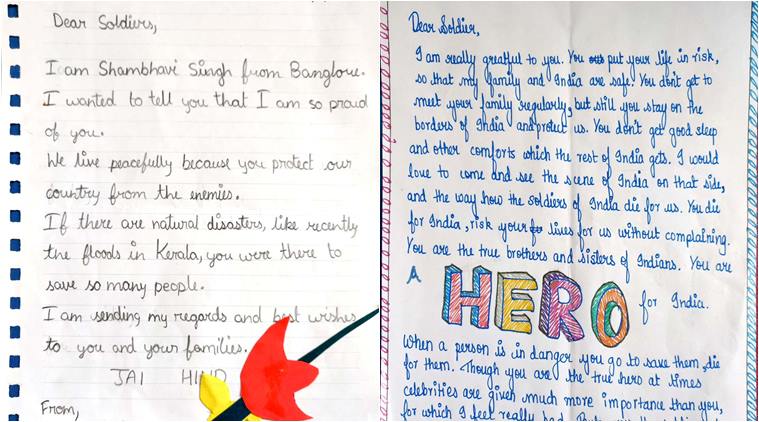 Dear Soldiers,
I am Shambhavi Singh from Banglore.
I wanted to tell you that I am so proud
of you.
We live peacefully because you protect our
country from the enemies.
If there are natural disasters, like recently
the floods in Kerala, you were there to
save so many people.
I am sending my regards and best wishes
to you and your families.
JAI HIND
From,
Dear Soldier,
I am really greatful to you. You put your life in risk,
so that my family and India are safe. You don't get to
meet your family regularly, but still you stay on the
borders of India and protect us. You don't get good sleep
and other comforts which the rest of India gets. I would
love to come and see the scene of India on that side,
and the way how the soldiers of India die for us. You die
for India, risk your lives for us without complaining.
You are the true brothers and sisters of Indians. You are
A HERO for India.
When a person is in danger you go to save them, die
for them. Though you are the true hero at times
celebrities are given much more importance than you,
for which I feel really bad. But